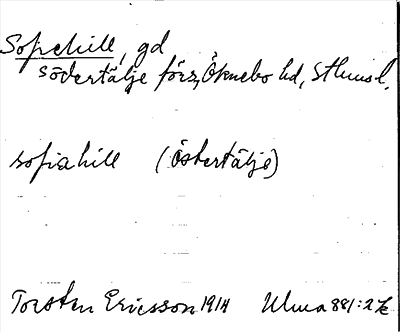 Sofiehill, gd
Södertälje förs, Öknebo hd, Sthms l.
sofiahill (Östertälje)
Torsten Ericsson 1914 Ulma 881:2